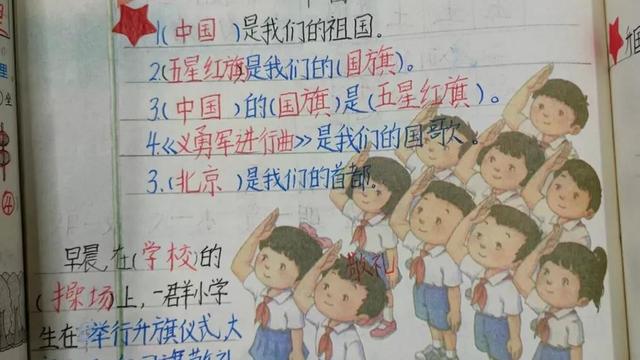 1(中国)是我们的祖国。
2.(五星红旗)是我们的(国旗)。
3.(中国)的(国旗)是(五星红旗)。
4.《义勇军进行曲》是我们的国歌。
3.(北京)是我们的首都。
早晨,在(学校)的
敬礼
(操场)上,一群小学
生在举行升旗仪式,大